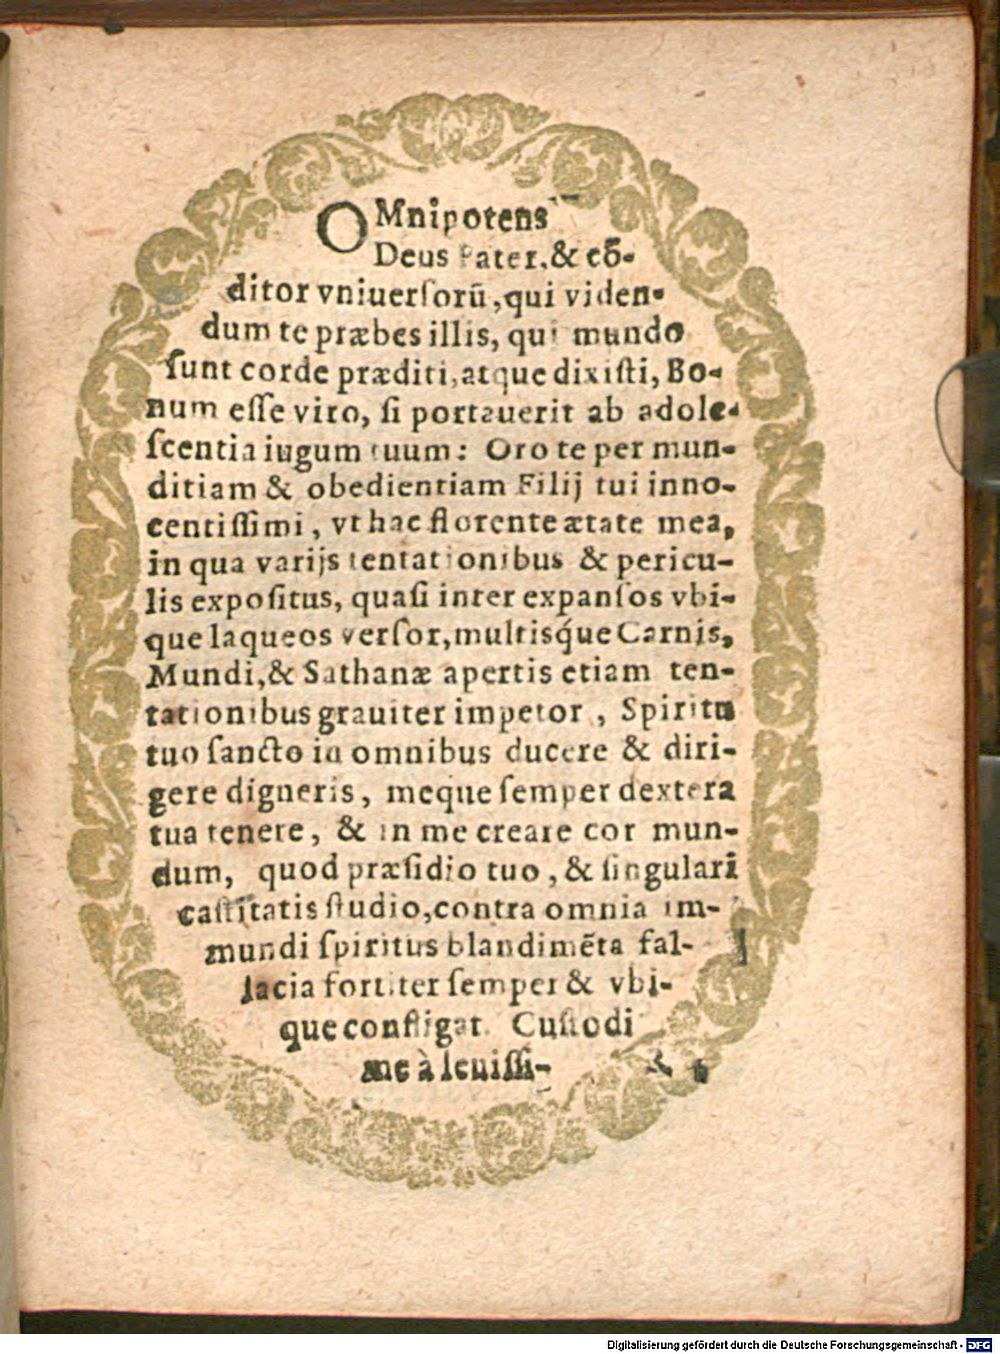 OMnipotens
Deus Pater, & cõ-
ditor vniuerſorũ, qui viden-
dum te præbes illis, qui mundo
ſunt corde præditi, atque dixiſti, Bo-
num eſſe viro, ſi portauerit ab adole-
ſcentia iugum tuum: Oro te per mun-
ditiam & obedientiam Filij tui inno-
centiſſimi, vt hac florente ætate mea,
in qua varijs tentationibus & pericu-
lis expoſitus, quaſi inter expanſos vbi-
que laqueos verſor, multisq́ue Carnis,
Mundi, & Sathanæ apertis etiam ten-
tationibus grauiter impetor, Spiritu
tuo ſancto in omnibus ducere & diri-
gere digneris, meque ſemper dextera
tua tenere, & in me creare cor mun-
dum, quod præſidio tuo, & ſingulari
caſtitatis ſtudio, contra omnia im-
mundi ſpiritus blandimẽta fal-
lacia fortiter ſemper & vbi-
que confligat. Cuſtodi
me à leuiſſi-
Digitalisierung gefördert durch die Deutsche Forschungsgemeinschaft - DFG